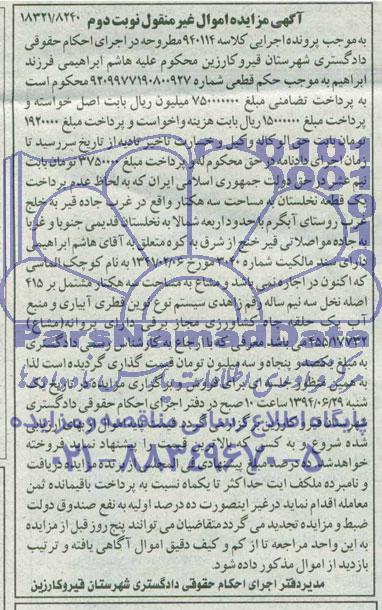 آگهی مزایده اموال غیر منقول نوبت دوم ۱۸۳۲۱/۸۲۴۰
به موجب پرونده اجرایی کلاسه ۹۴۰۱۱۴ مطروحه در اجرای احکام حقوقی
دادگستری شهرستان قیر و کارزین محکوم علیه هاشم ابراهیمی فرزند
ابراهیم به موجب حکم قطعی شماره ۹۲۰۹۹۷۷۱۹۰۸۰۰۹۲۷ محکوم است
به پرداخت تضامنی مبلغ ۷۵۰۰۰۰۰۰۰ میلیون ریال بابت اصل خواسته و
پرداخت مبلغ ۱۵۰۰۰۰۰۰ ریال بابت هزینه واخواست و پرداخت مبلغ ۱۹۲۰۰۰۰
تومان بابت حق الوکاله وکیل و خسارت تاخیر تادیه از تاریخ سررسید تا
زمان اجرای دادنامه در حق محکوم له و پرداخت مبلغ ۳۷۵۰۰۰۰ تومان بابت
نیم عشر در حق دولت جمهوری اسلامی ایران که به لحاظ عدم پرداخت
یک قطعه نخلستان به مساحت سه هکتار واقع در غرب جاده قیر به خلج
غربی روستای آبگرم با حدود اربعه شمالا به نخلستان قدیمی جنوبا و غربا
به جاده مواصلاتی قیر خنج از شرق به کوه متعلق به آقای هاشم ابراهیمی
دارای سند مالکیت شماره ۳۰۲۰ مورخ ۱۳۴۷/۰۲/۰۶ به نام کوچک الماسی
که اکنون در اجاره نمی باشد و مشاع به مساحت سه هکتار مشتمل بر ۴۱۵
اصله نخل سه نیم ساله رقم زاهدی سیستم نوع نوین قطری آبیاری و منبع
آب یک حلقه چاه کشاورزی مجاز برقی دارای پروانه (مشاع)
۴۵۵/۱۷۷۳۲ می باشد معرفی که با ارجاع به کارشناس رسمی دادگستری
به مبلغ یکصد و پنجاه و سه میلیون تومان قیمت گذاری گردیده است لذا
به همین منظور جلسه ای برای فروش و برگزاری مزایده در تاریخ یک
شنبه ۱۳۹۴/۰۶/۲۹ ساعت ۱۰ صبح در دفتر اجرای احکام حقوقی دادگستری
شهرستان قیر و کارزین برگزار می گردد قیمت پایه
شده شروع و به کسی که بالاترین قیمت را پیشنهاد نماید فروخته
خواهد شد. ده درصد مبلغ پیشنهادی فی المجلس از برنده مزایده دریافت
و نامبرده مکلف است حداکثر تا یکماه نسبت به پرداخت باقیمانده ثمن
معامله اقدام نماید در غیر اینصورت ده درصد اولیه به نفع صندوق دولت
ضبط و مزایده تجدید می گردد متقاضیان می توانند پنج روز قبل از مزایده
به این واحد مراجعه تا از کم و کیف دقیق اموال آگاهی یافته و ترتیب
بازدید از اموال مذکور داده شود.
مدیر دفتر اجرای احکام حقوقی دادگستری شهرستان قیر و کارزین
ParsNamadData
پایگاه اطلاع رسانی مناقصه و مزایده
۰۲۱-۸۸۳۴۹۶۷۰-۵